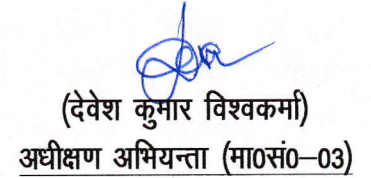 (देवेश कुमार विश्वकर्मा)
अधीक्षण अभियन्ता (मा0सं0–03)